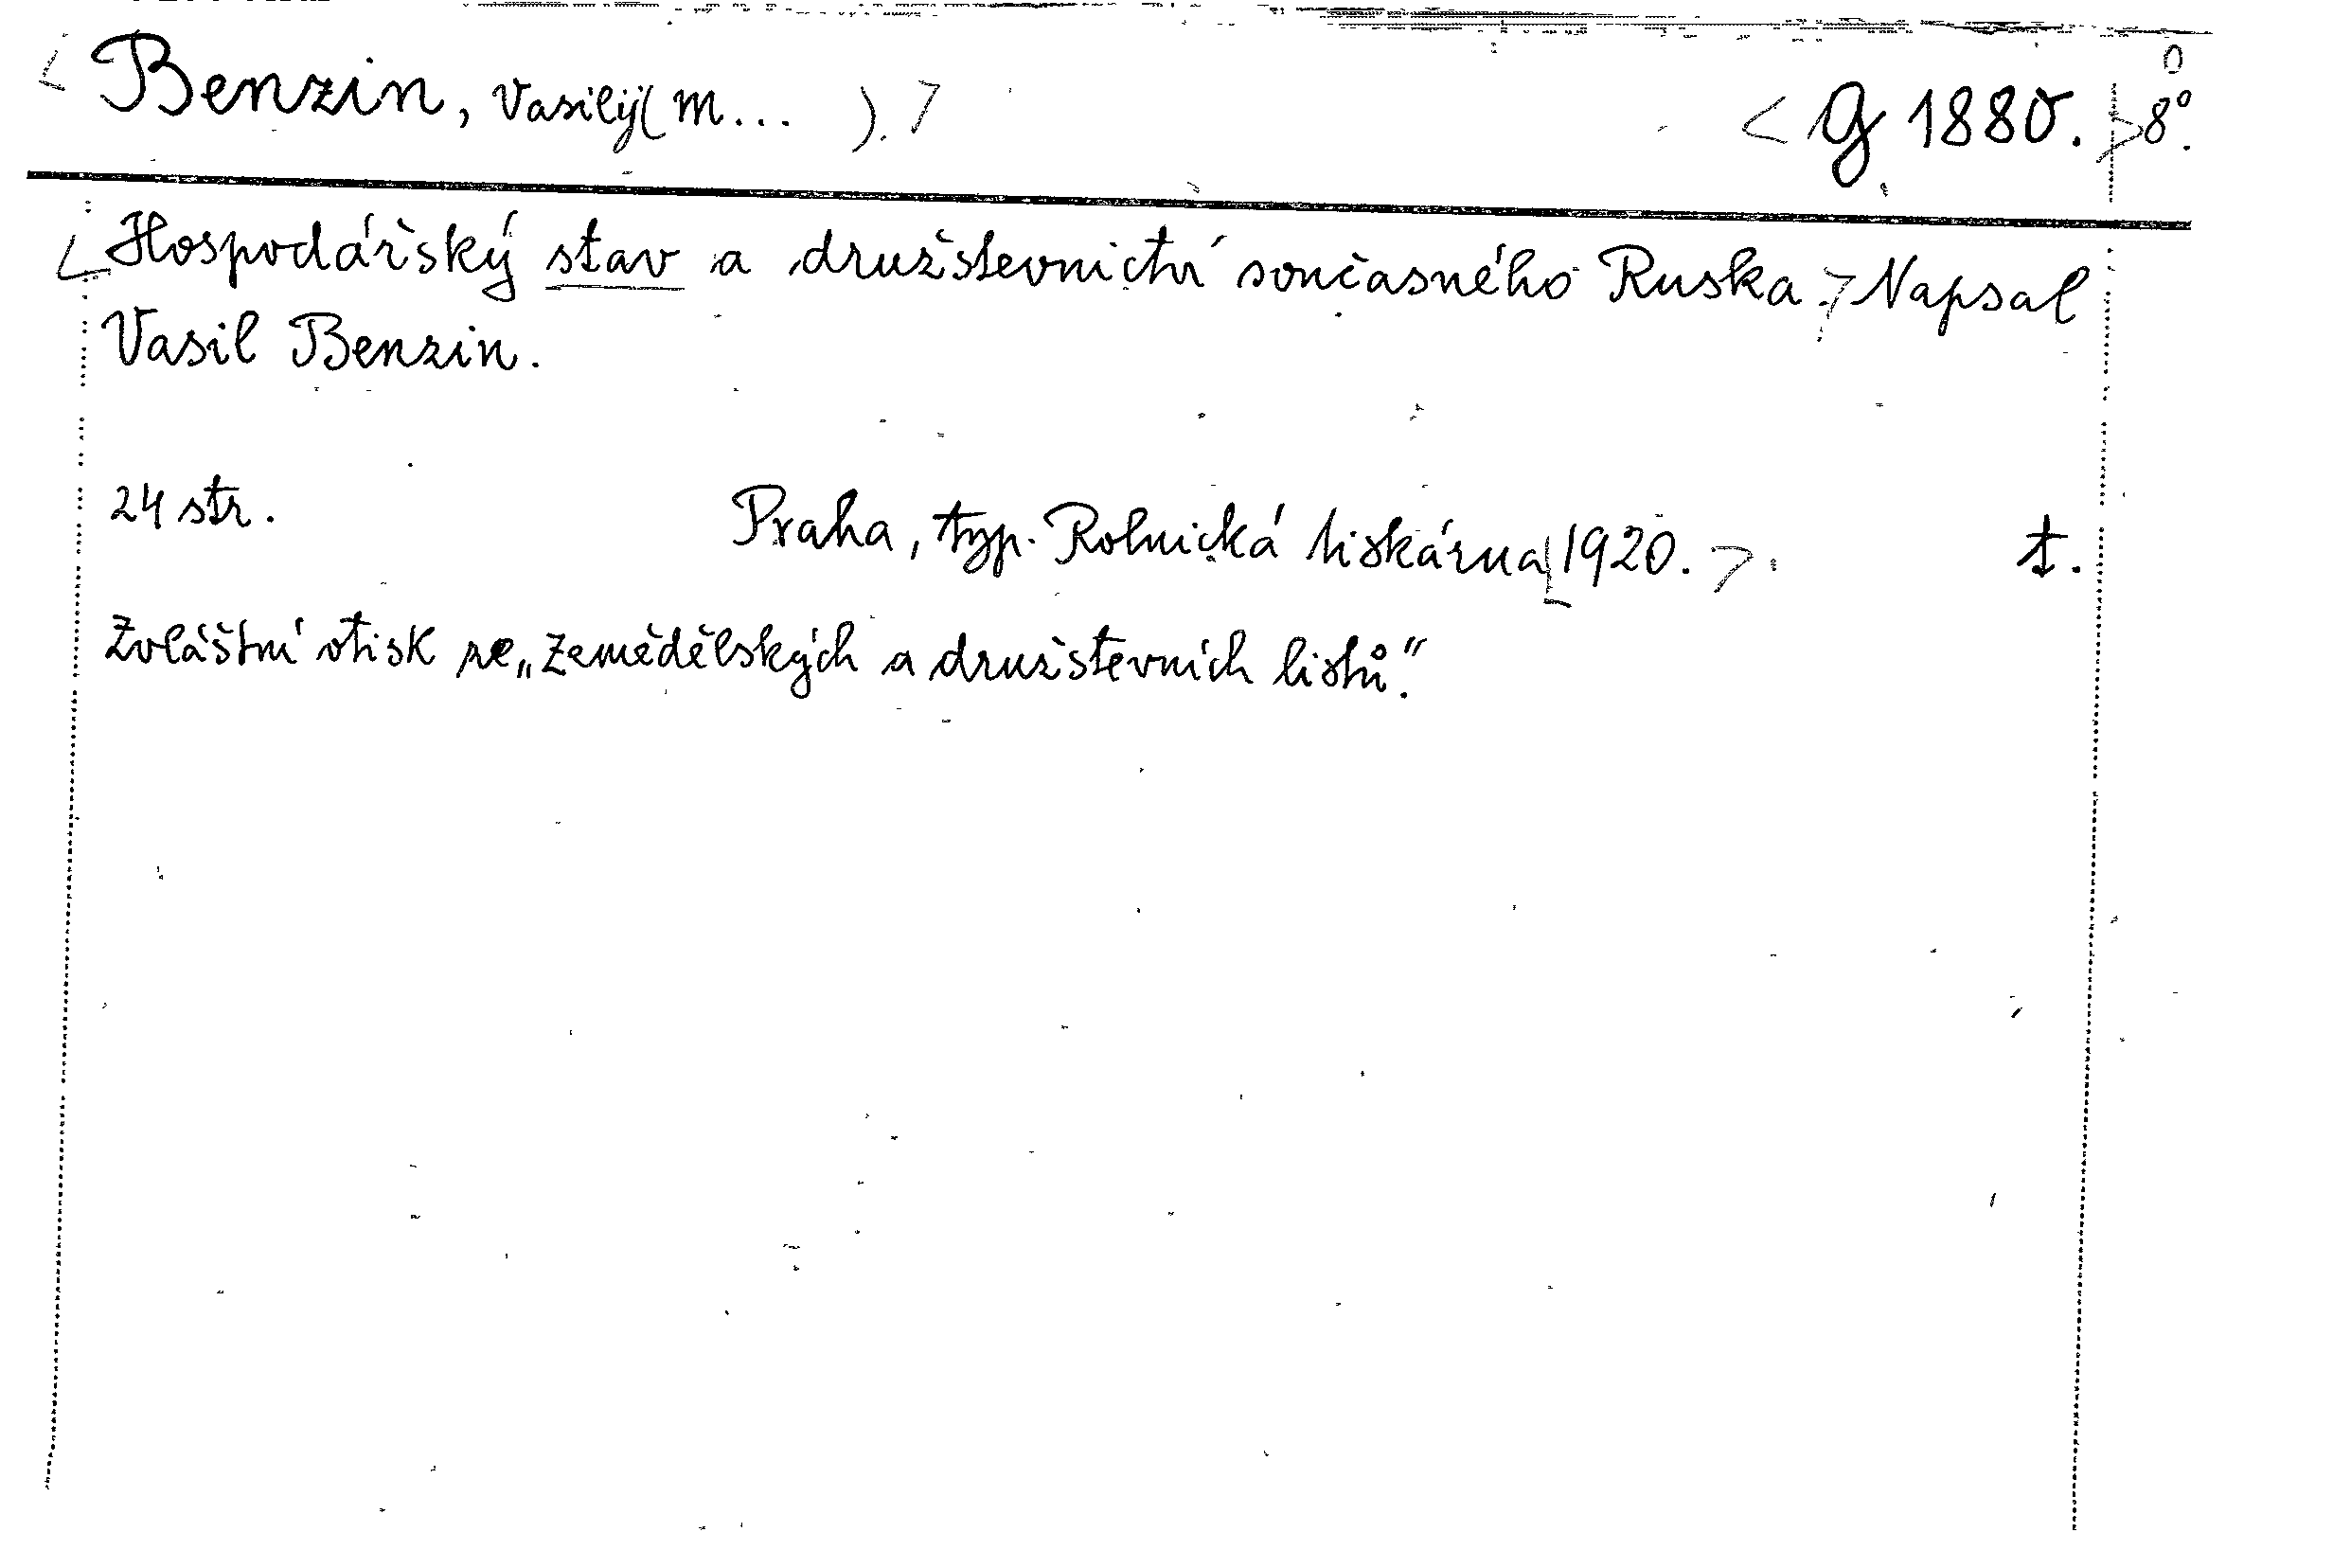 < Benzin, Vasilij (M... ). > < G 1880. > 8°.
< Hospodářský stav a družstevnictví současného Ruska. > Napsal
Vasil Benzin.
24 str. Praha, typ. Rolnická tiskárna < 1920. > t.
Zvláštní otisk ze „Zemědělských a družstevních listů."